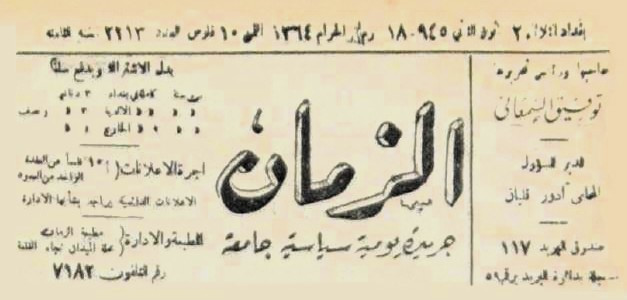 بغداد الثلاثاء ٢٠ تشرين الثاني ١٩٤٥ - ١٨ محرم الحرام ١٣٦٤ الثمن ١٠ فلوس العدد ٢٢١٣ السنة الثامنة
صاحبها ورئيس تحريرها
توفيق السمعاني
المدير المسؤول
المحامي أدور قليان
صندوق البريد ١١٧
مسجلة بدائرة البريد برقم ٥٩
الزمان
جريدة يومية سياسية جامعة
بدل الاشتراك ويدفع سلفاً
اجرة الاعلانات (١٥ فلساً عن العقدة
الواحدة من العمود
الاعلانات الدائمية يراجع بشأنها الادارة
المطبعة والادارة (مطبعة الزمان
محلة الميدان تجاه القلعة
رقم التلفون ٧١٨٣